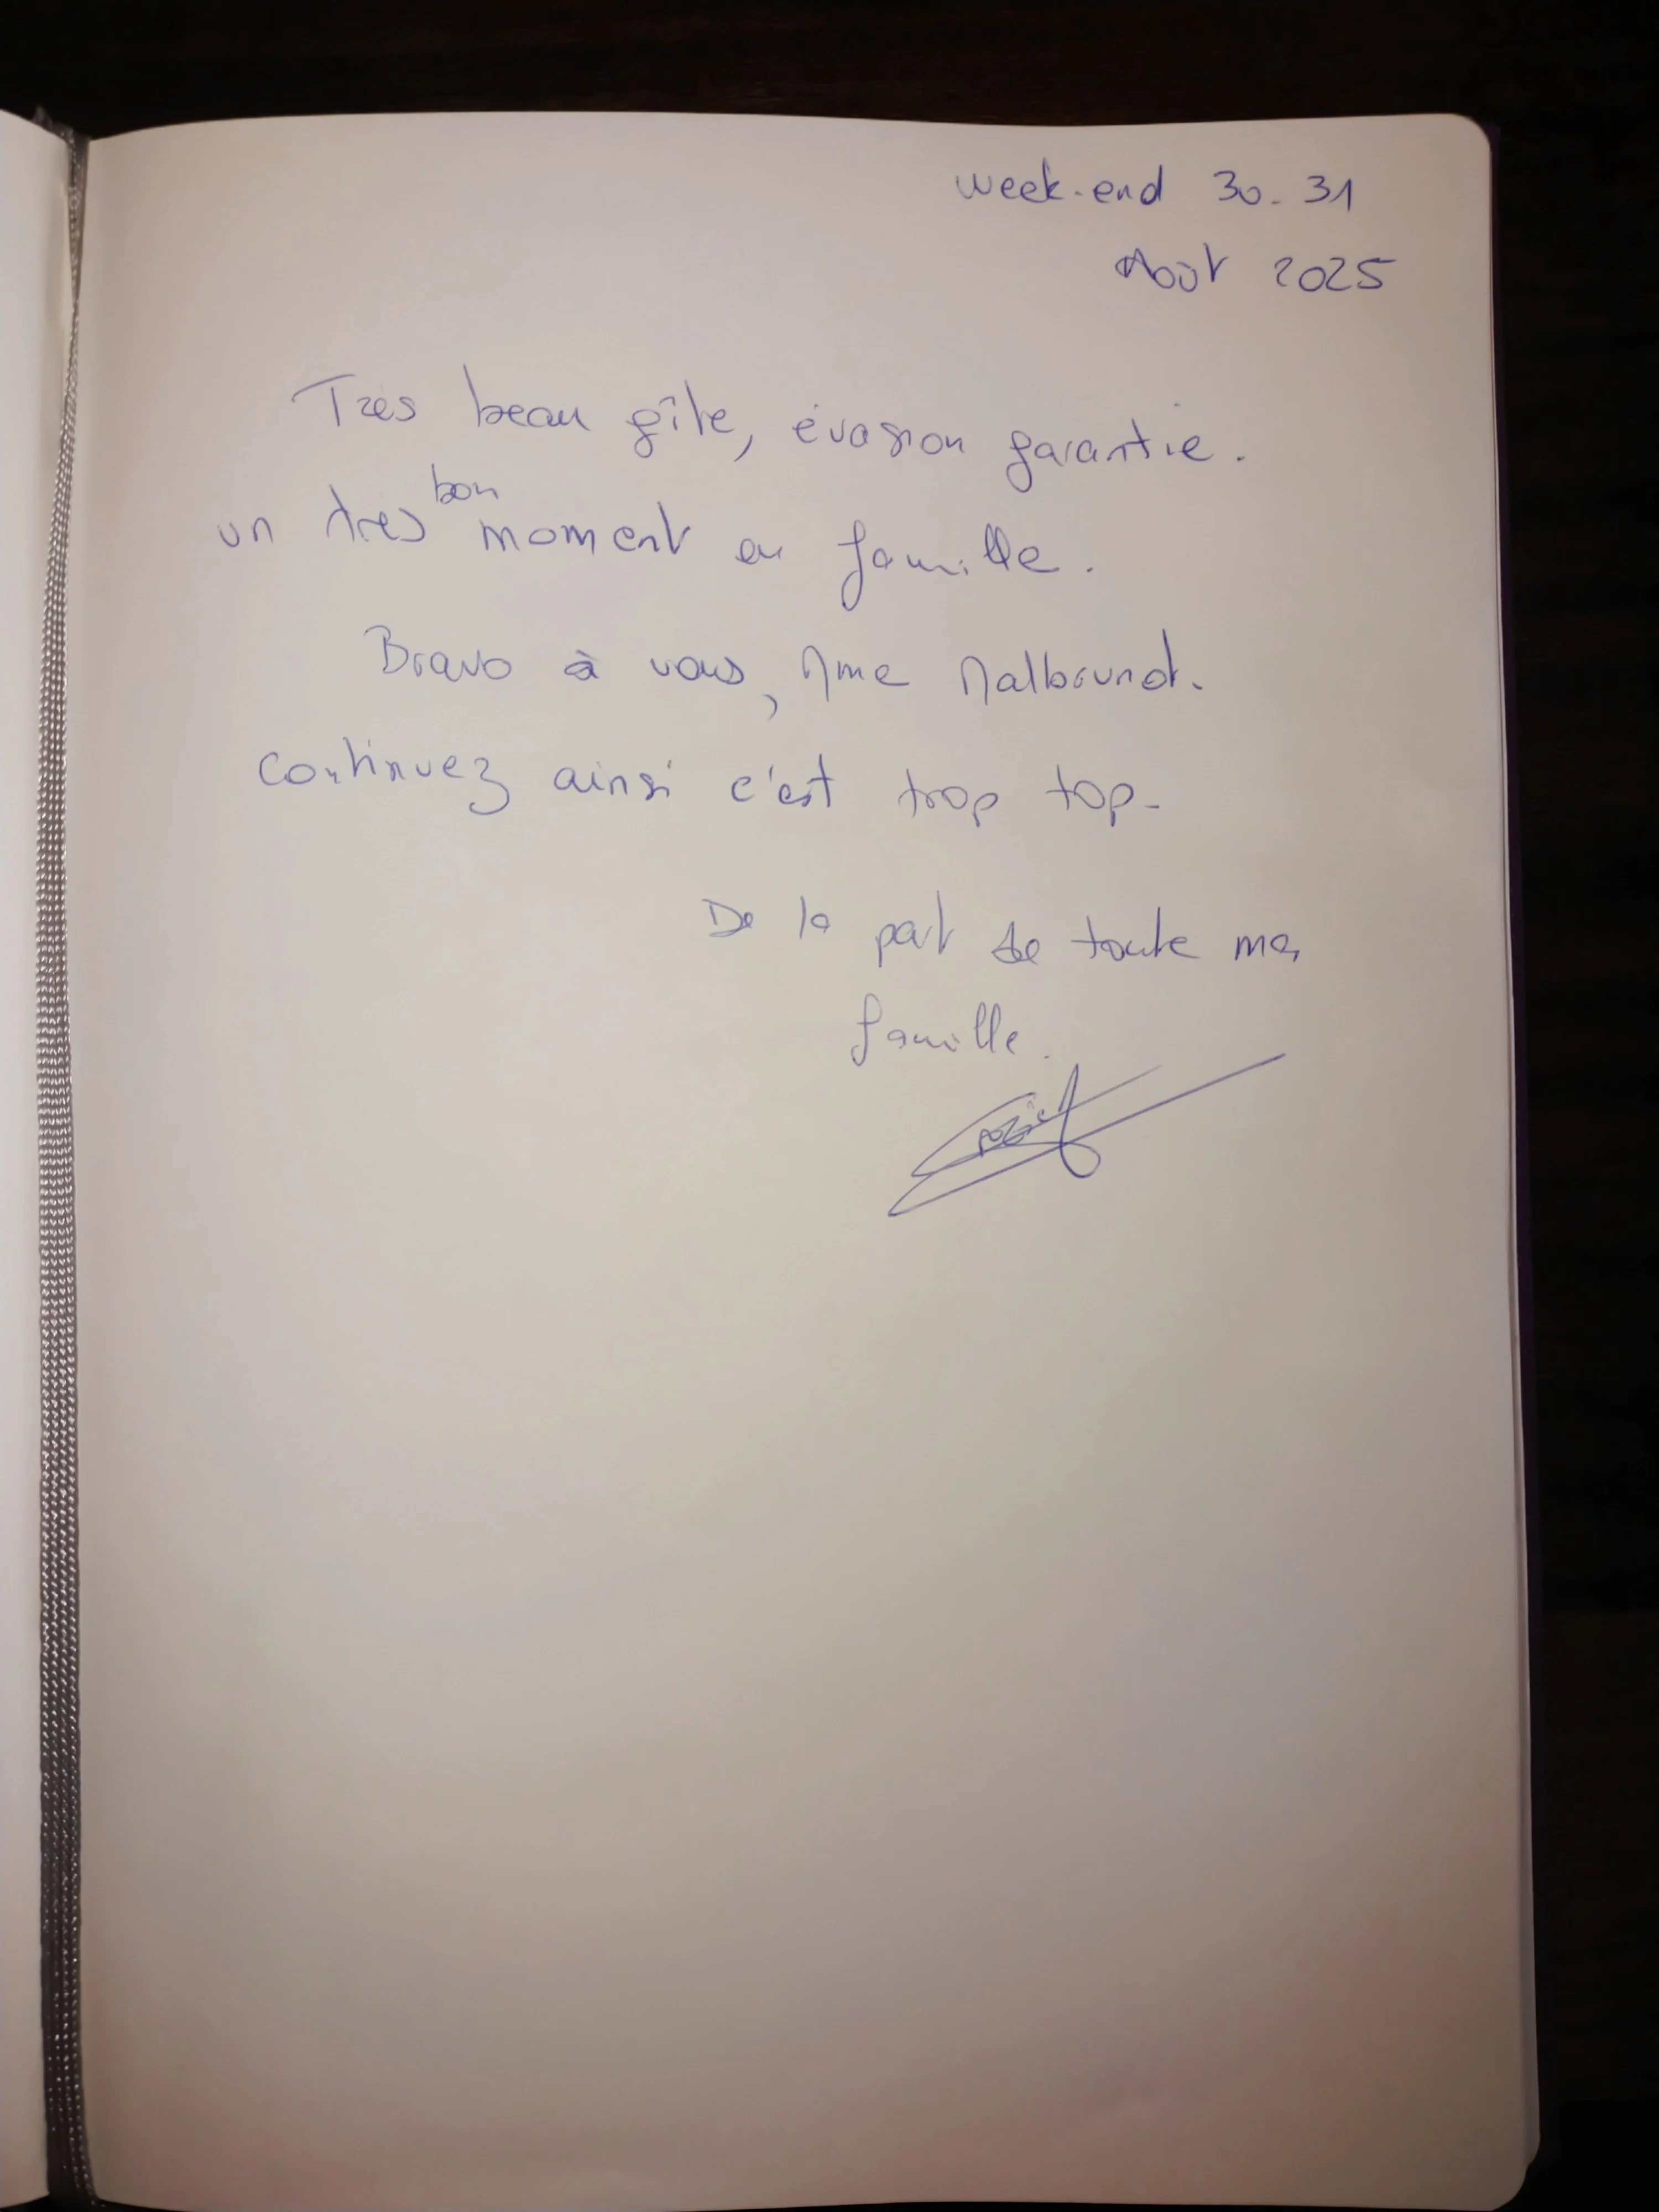 week-end 30-31
Août 2025
Très beau gîte, évasion garantie.
un très bon moment en famille.
Bravo à vous, Mme Malbrunot.
Continuez ainsi c'est trop top.
De la part de toute ma
famille.